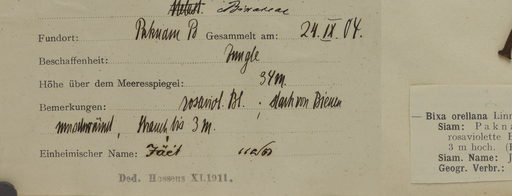 Bixaceae
Fundort: Paknam P Gesammelt am: 24.IX.04.
Beschaffenheit: Jungle
Höhe über dem Meeresspiegel: 34 m.
Bemerkungen: rosaviol. Bl., stark von Bienen
umschwärmt, Strauch bis 3 m.
Einheimischer Name:
Ded. Hosseus XI.1911.
— Bixa orellana Linn
Siam: Pakna
rosaviolette B
3 m hoch. (
Siam. Name: J
Geogr. Verbr.: